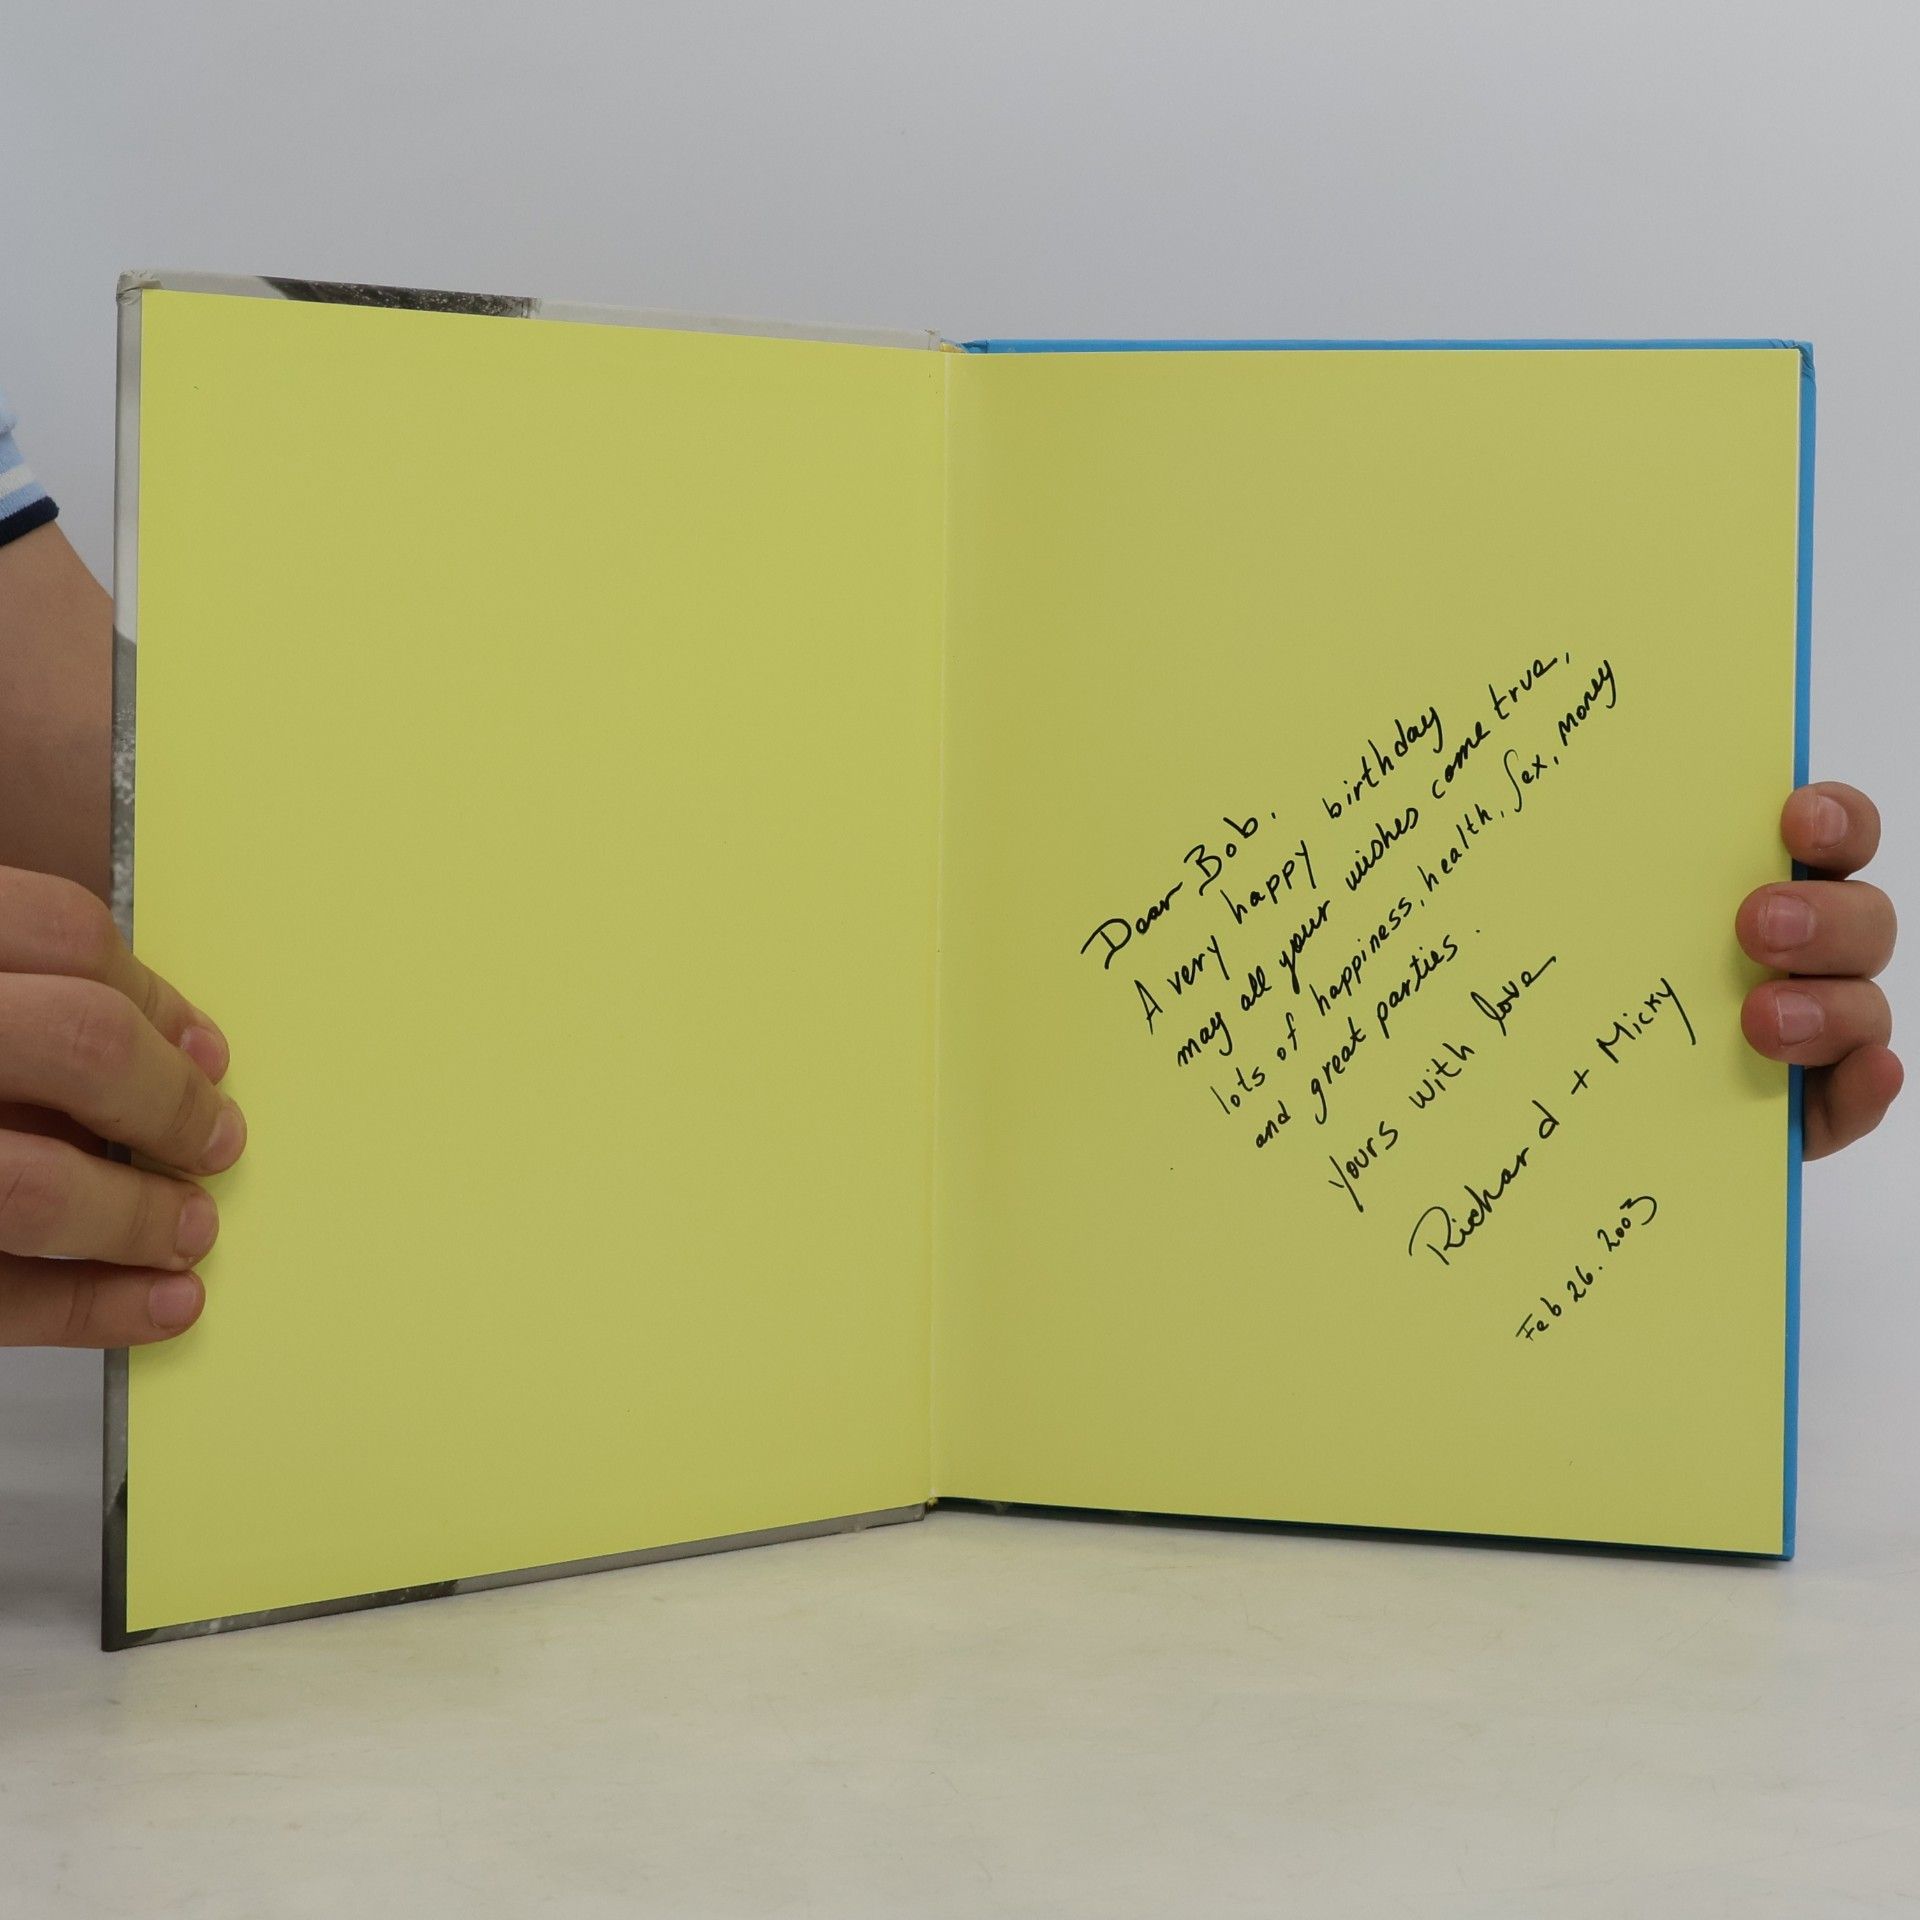 Dear Bob,
A very happy birthday
may all your wishes come true,
lots of happiness, health, sex, money
and great parties.
Yours with love
Richard + Micky
Feb 26. 2003